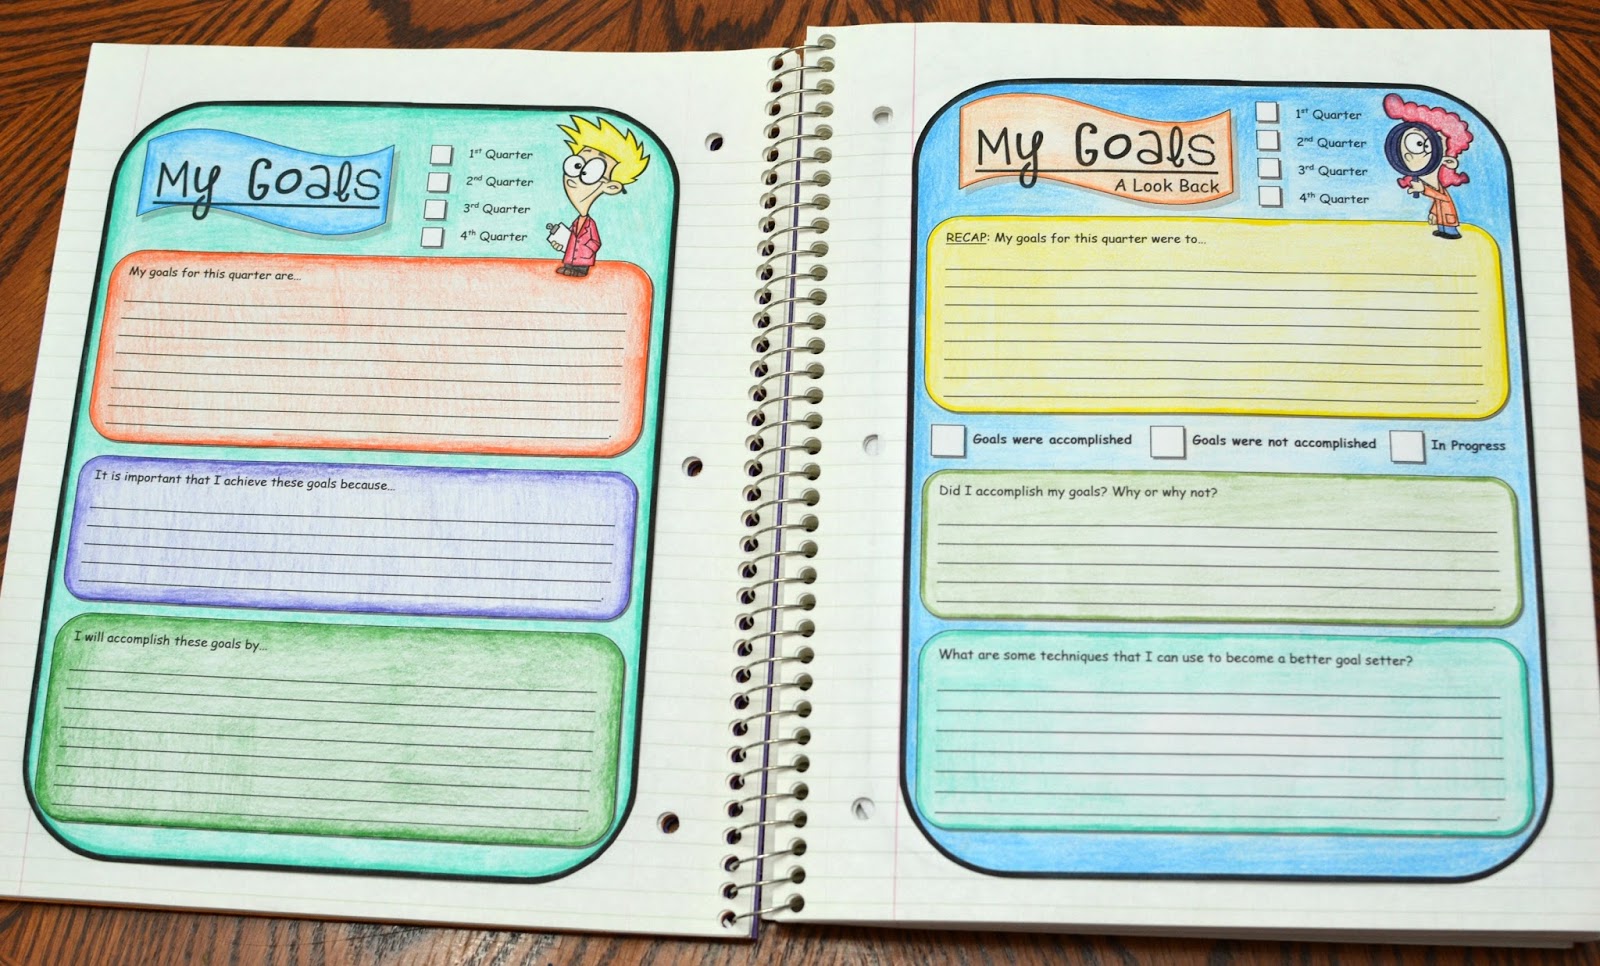 My Goals
1st Quarter
2nd Quarter
3rd Quarter
4th Quarter
My goals for this quarter are...
It is important that I achieve these goals because...
I will accomplish these goals by...
My Goals
A Look Back
1st Quarter
2nd Quarter
3rd Quarter
4th Quarter
RECAP: My goals for this quarter were to...
Goals were accomplished Goals were not accomplished In Progress
Did I accomplish my goals? Why or why not?
What are some techniques that I can use to become a better goal setter?